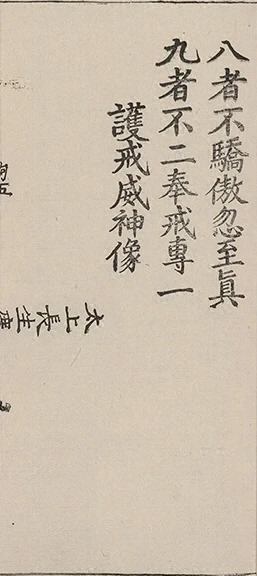 八者不驕傲忽至眞
九者不二奉戒專一
護戒威神像
太上長生